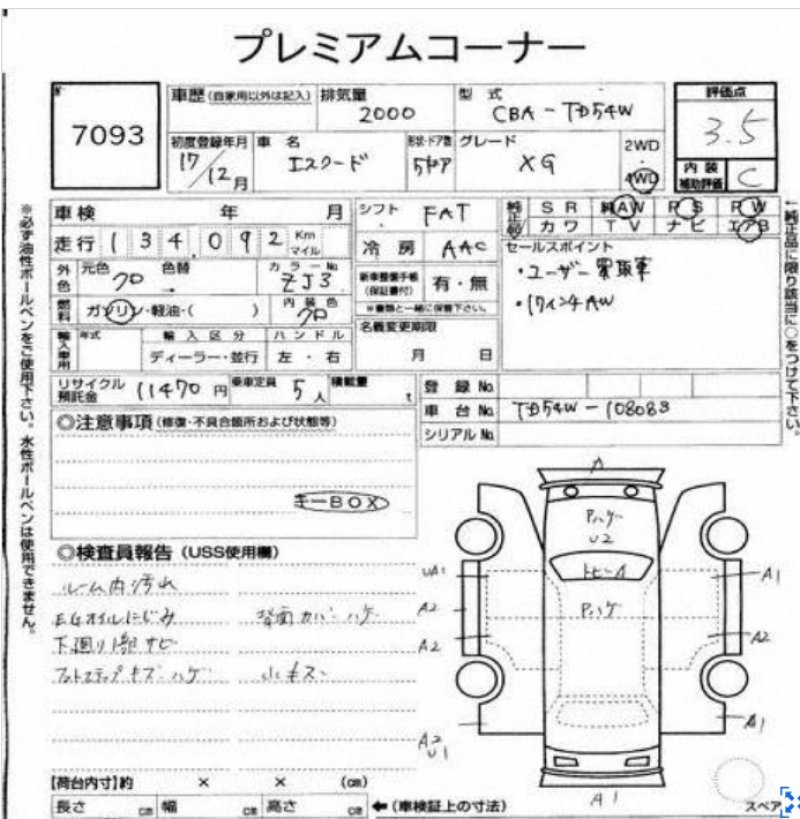 プレミアムコーナー
7093
車歴 (自家用以外は記入) 排気量 2000 型式 CBA-TD54W 評価点 3.5
初度登録年月 17/12月 車名 エスクード 形状・ドア数 5ドア グレード XG 2WD 4WD 内装補助評価 C
車検 年 月 シフト FAT 純正装備 SR 純AW PS PW
走行 134,092 Km マイル 冷房 AAC カワ TV ナビ エアB
外色 元色 クロ 色替 → カラーNo. ZJ3 新車整備手帳(保証書付) 有・無
※書類と一緒に保管下さい。
セールスポイント
・ユーザー買取車
・17インチAW
燃料 ガソリン・軽油・( ) 内装色 クロ 名義変更期限 月 日
輸入車用 年式 輸入区分 ディーラー・並行 ハンドル 左・右
リサイクル預託金 11470円 乗車定員 5人 積載量 t 登録No.
車台No. TD54W-108083
シリアルNo.
◎注意事項 (修復・不具合箇所および状態等)
キーBOX
◎検査員報告 (USS使用欄)
ルーム内汚れ
EGオイルにじみ 背面カバーハゲ
下廻り1部サビ
フットステップキズ・ハゲ 小キズ
Pハゲ
U2
トビーA
Pハゲ
UA1 A1
A2 A2
A2
A1
A2
U1
A1
スペア
【荷台内寸】約 × × (cm)
長さ cm 幅 cm 高さ cm ←(車検証上の寸法)
※必ず油性ボールペンをご使用下さい。水性ボールペンは使用できません。
←純正品に限り該当に○をつけて下さい。